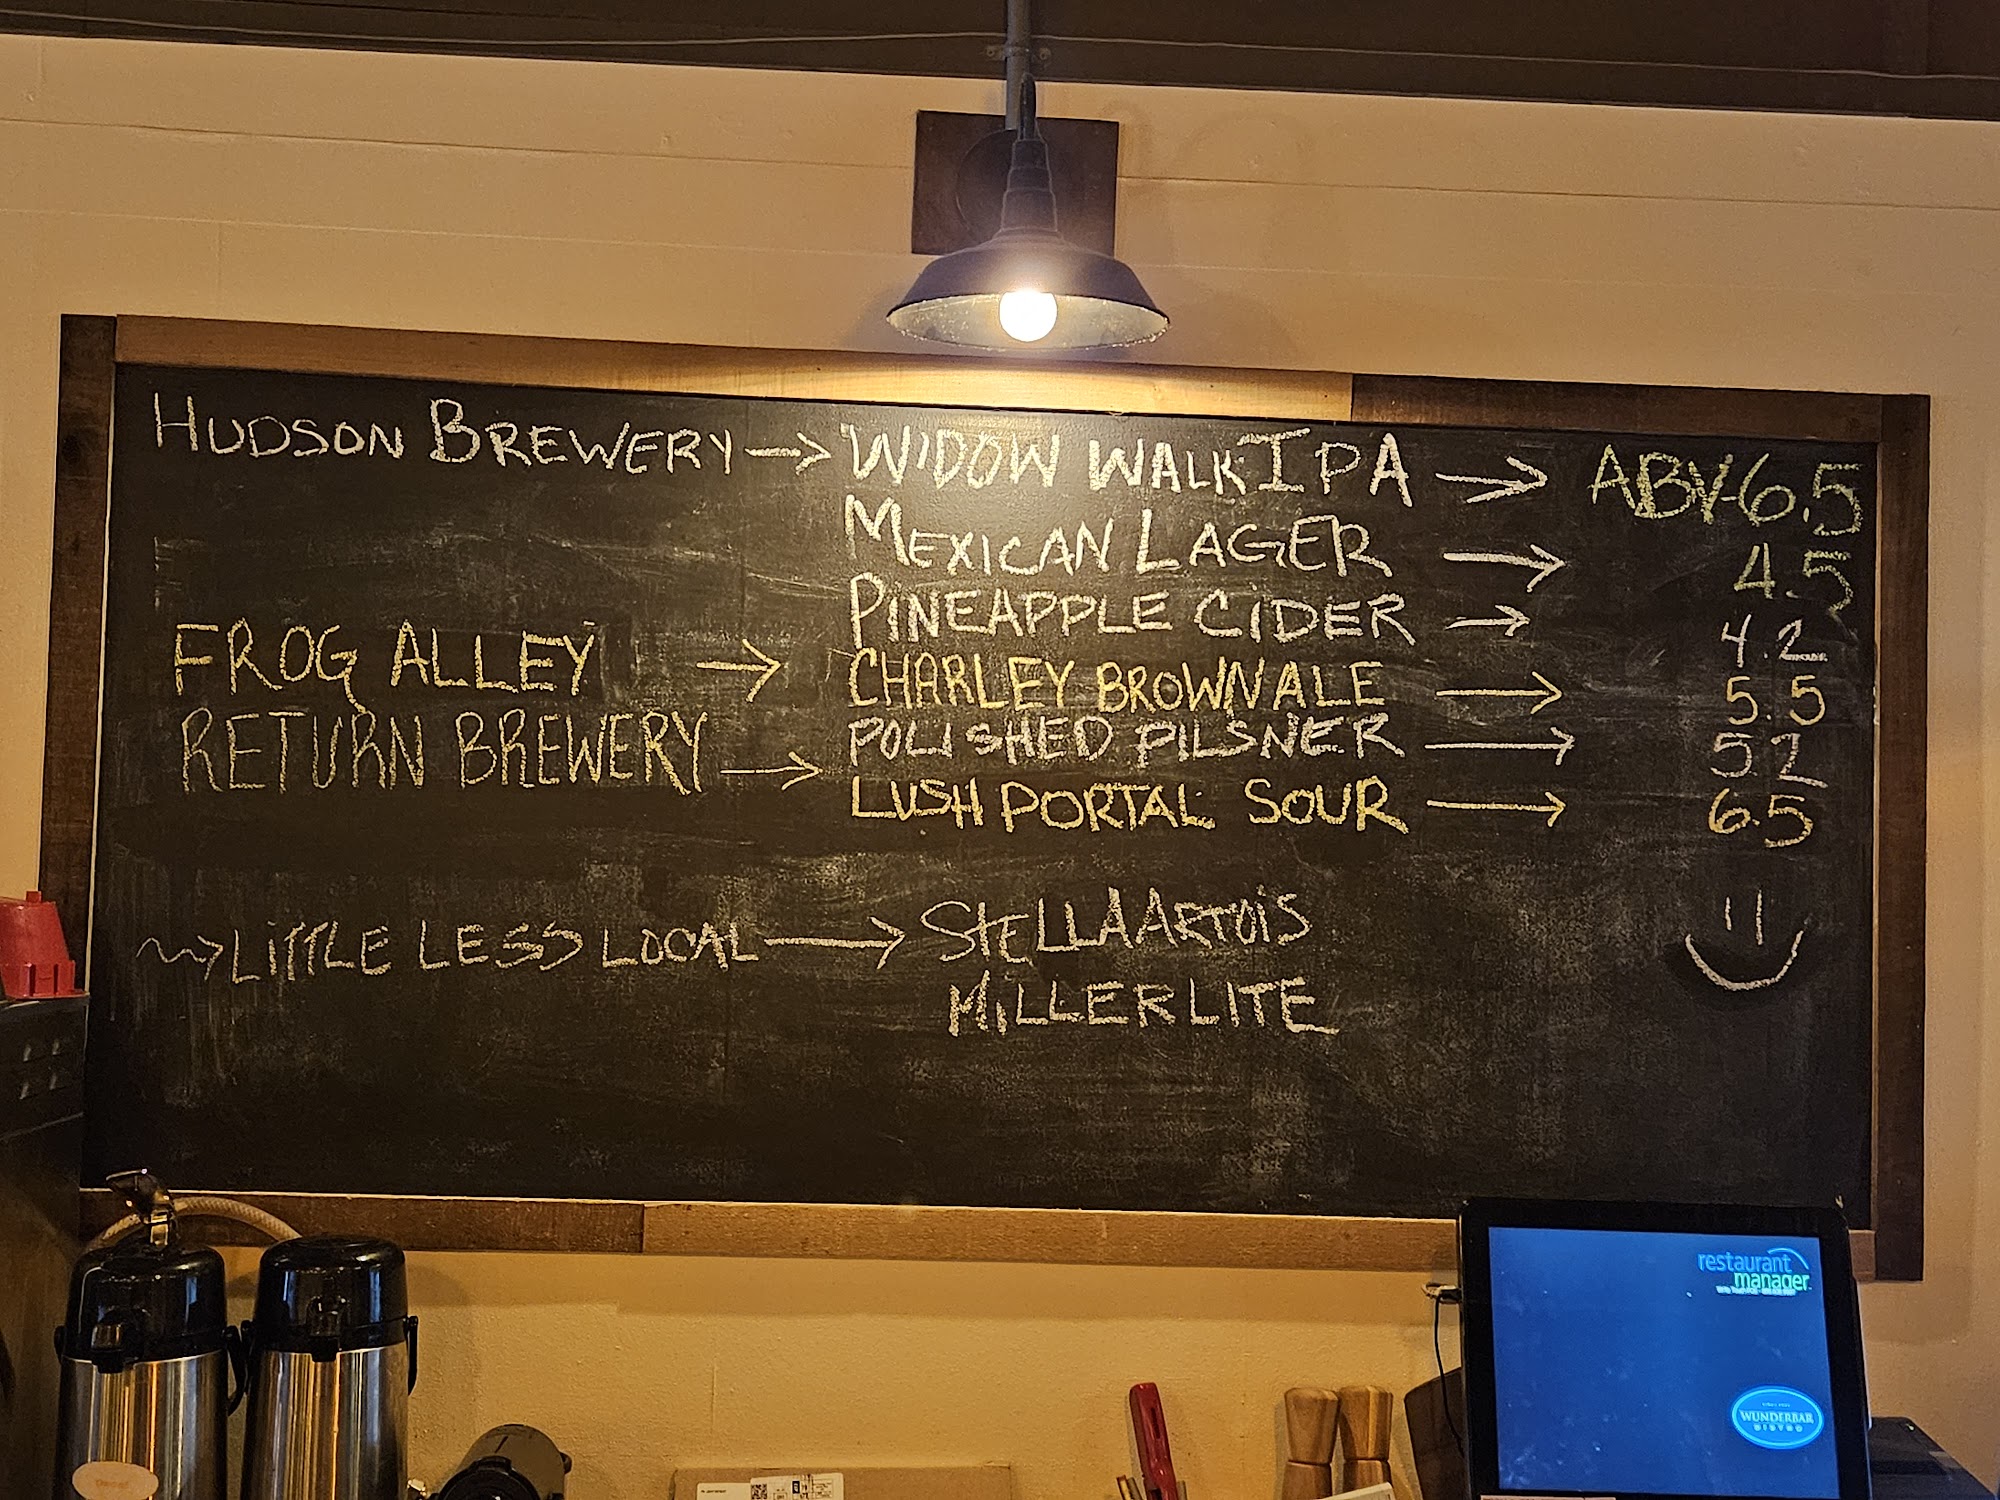 HUDSON BREWERY → WIDOW WALK IPA → ABV-6.5
MEXICAN LAGER → 4.5
PINEAPPLE CIDER → 4.2
FROG ALLEY → CHARLEY BROWN ALE → 5.5
RETURN BREWERY → POLISHED PILSNER → 5.2
LUSH PORTAL SOUR → 6.5
LITTLE LESS LOCAL → STELLA ARTOIS
MILLER LITE
restaurant
manager
WUNDERBAR
BISTRO